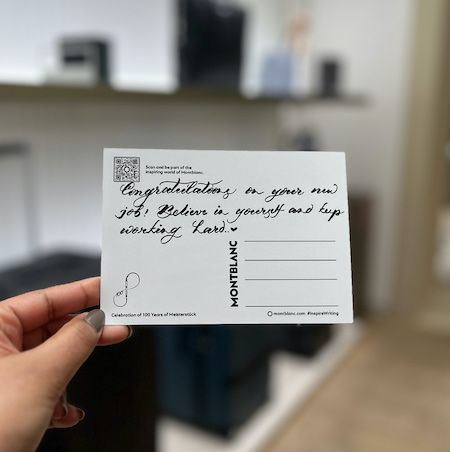 Scan and be part of the
inspiring world of Montblanc.
Congratulations on your new
job! Believe in yourself and keep
working hard..♥
MONTBLANC
100
Celebration of 100 Years of Meisterstück
montblanc.com #InspireWriting